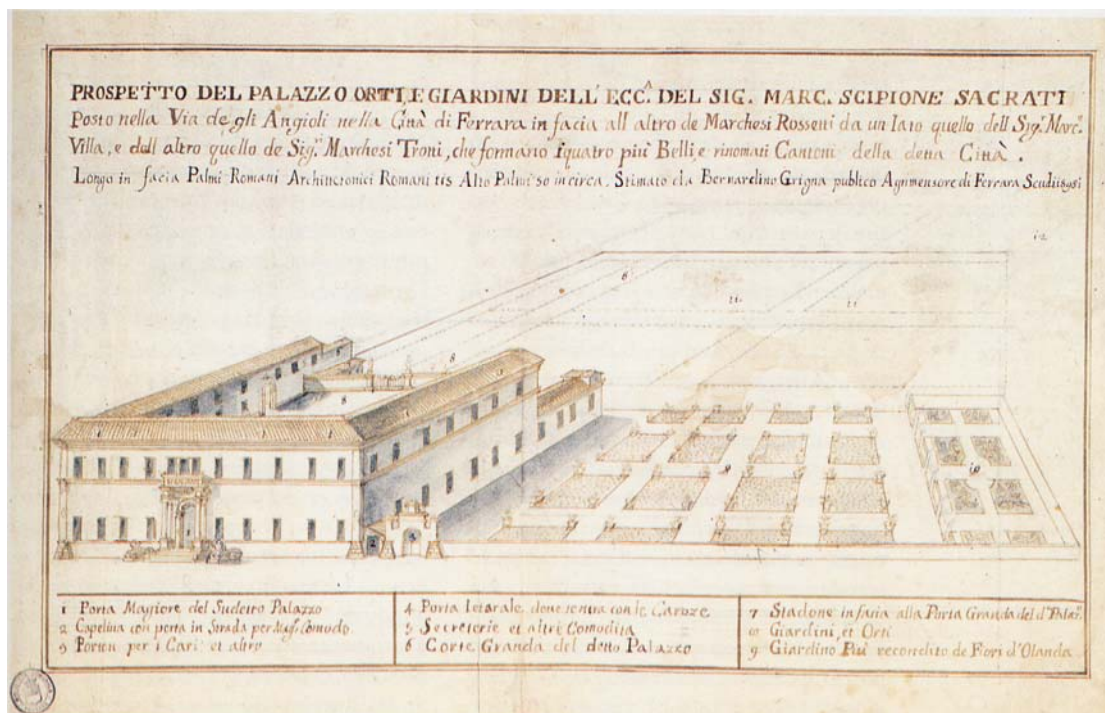 PROSPETTO DEL PALAZZO ORTI, E GIARDINI DELL' ECC.A DEL SIG. MARC. SCIPIONE SACRATI
Posto nella Via de gli Angioli nella Città di Ferrara in facia all altro de Marchesi Rossetti da un lato quello dell Sig.r Marc.
Villa, e dall altro quello de Sig.ri Marchesi Troni, che formano i quatro più Belli, e rinomati Cantoni della detta Città.
Longo in facia Palmi Romani Architetonici Romani Alto Palmi 50 in circa. Stimato da Bernardino Grigna publico Agrimensore di Ferrara Scudi
12
6
11
11
8
8
9
10
2
4
1 Porta Magiore del Sudetto Palazzo
2 Capelina con porta in Strada per Comodo
3 Porton per i Cari et altro
4 Porta laterale dove sentra con le Caroze
5 Secreterie et altri Comodita
6 Corte Granda del detto Palazzo
7 Stadone in facia alla Porta Granda del d.o Palaz.o
Giardini, et Orti
9 Giardino Più recondito de Fiori d'Olanda